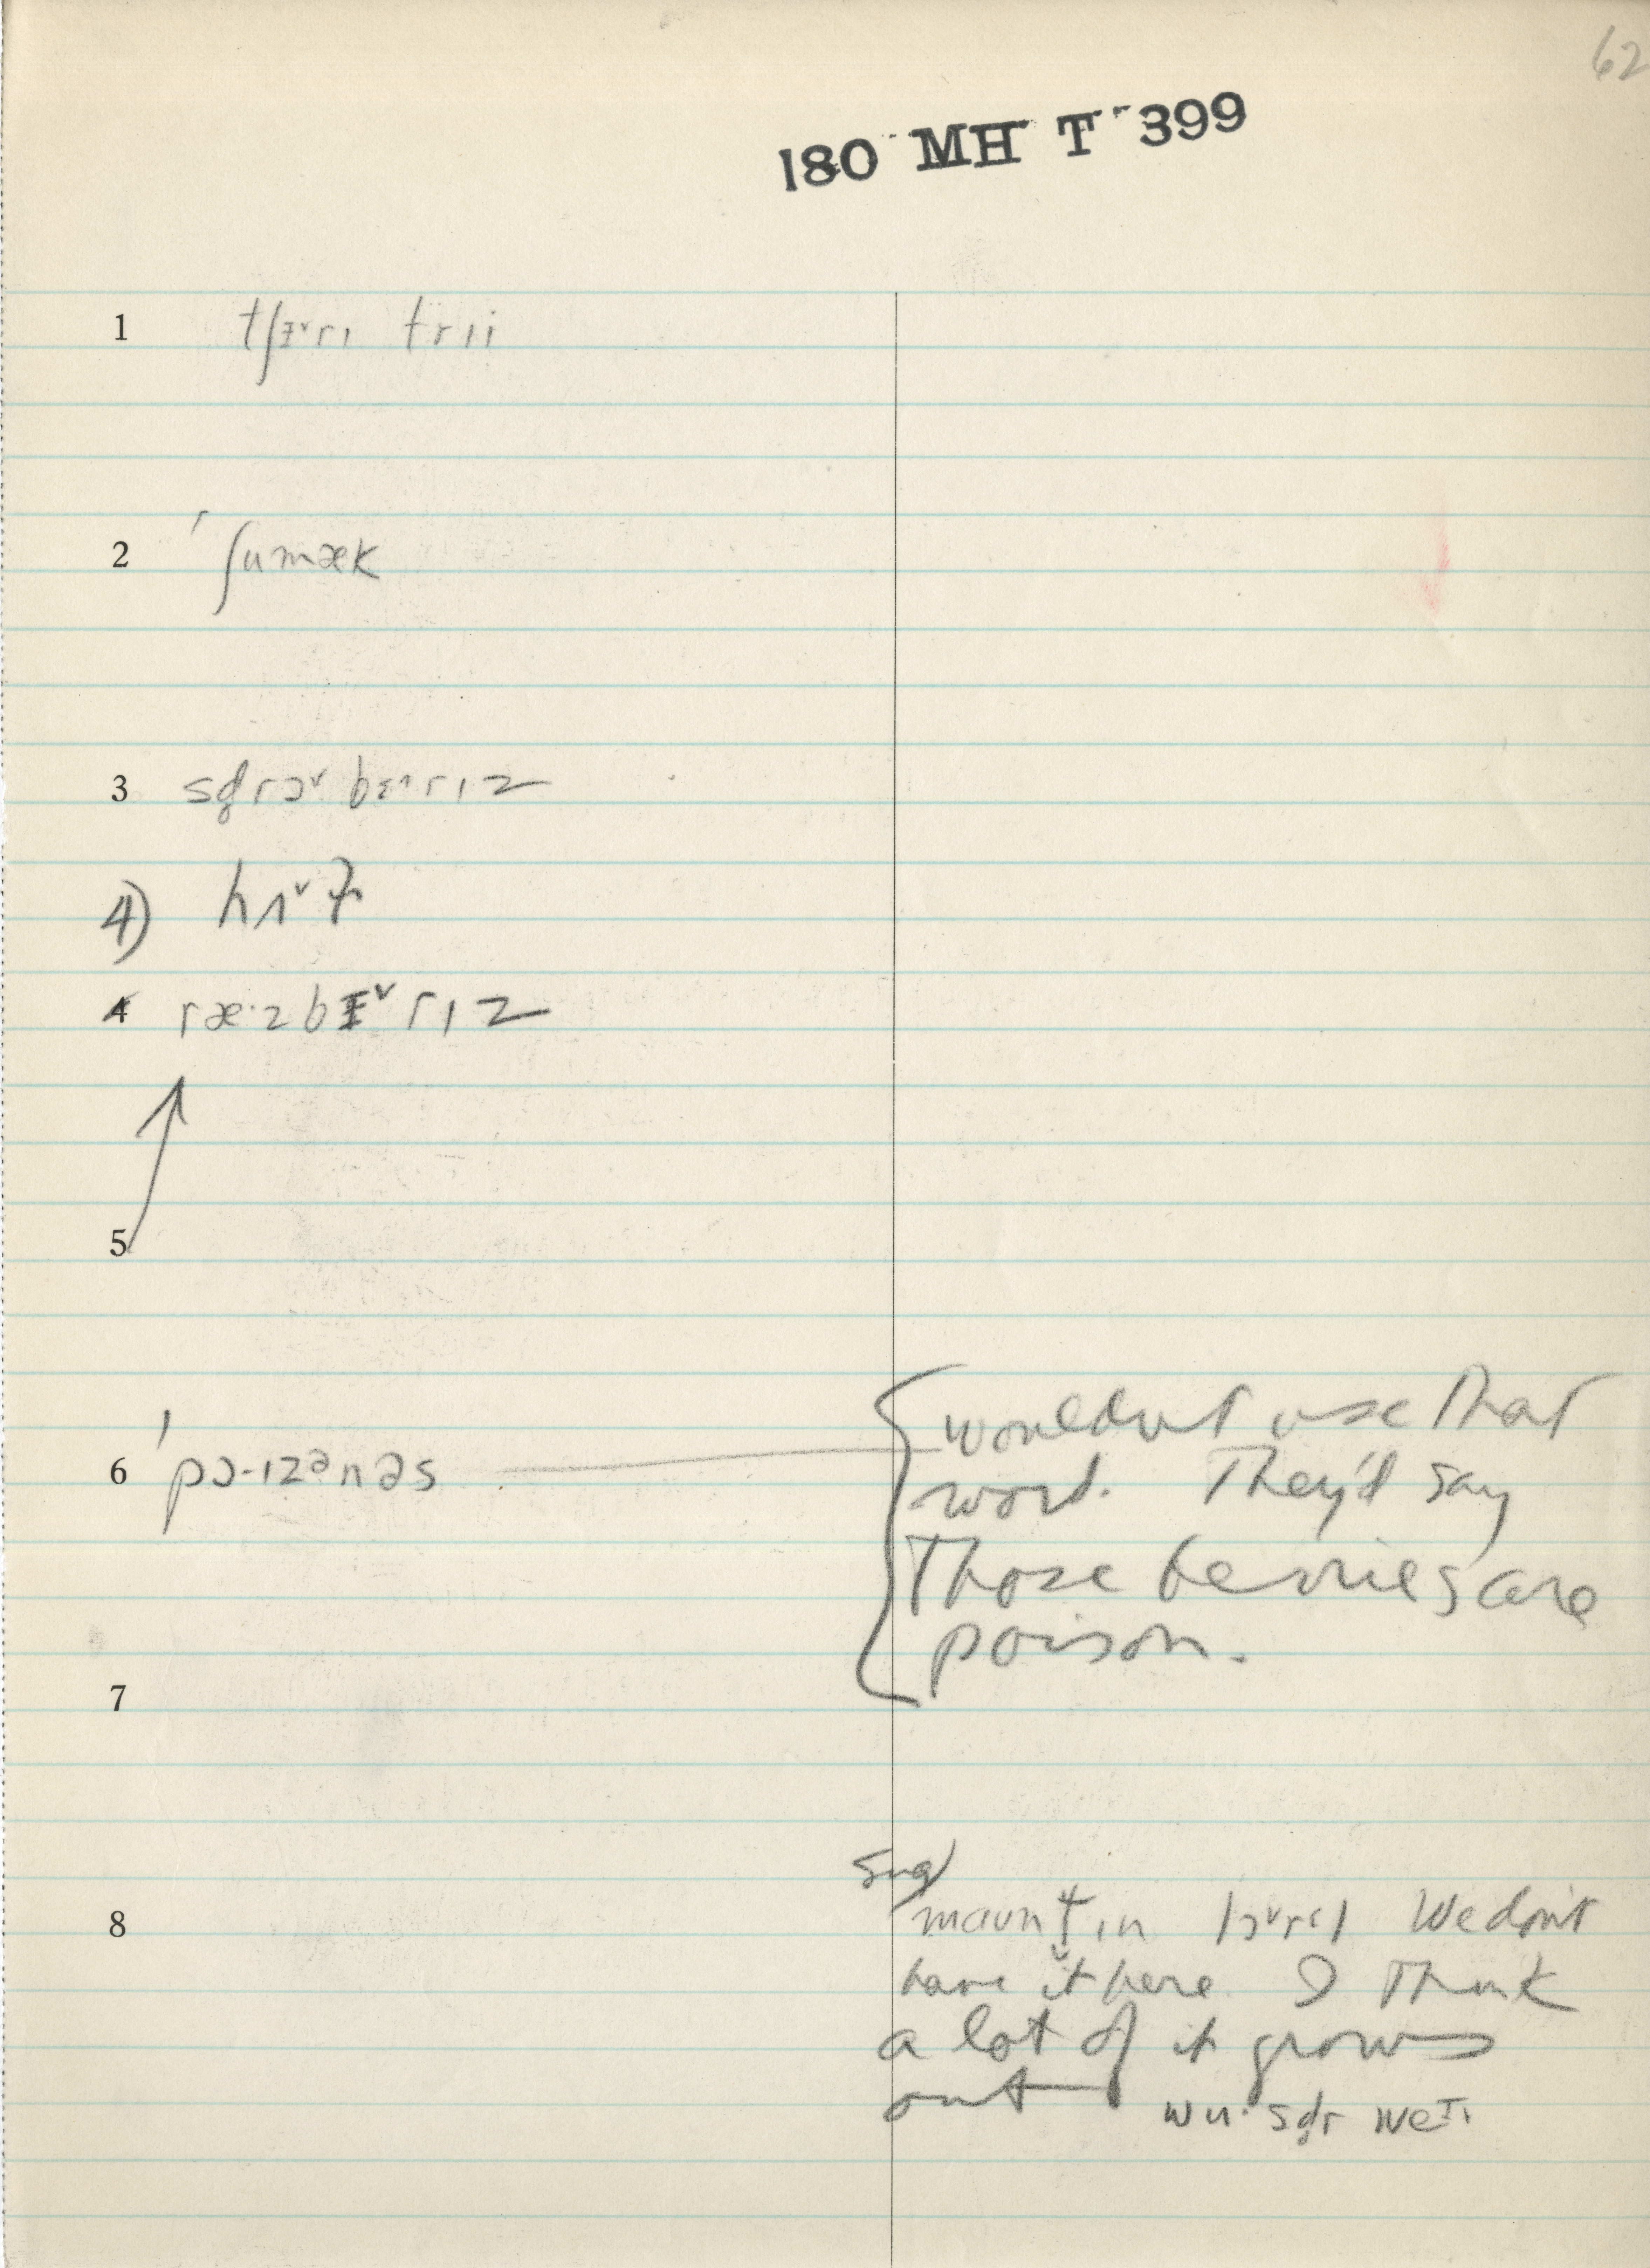 62
180 MH T 399
1 tʃɪ˅rɪ trii
2 ˈʃumæk
3 strɔ˅ bɛ^rɪz
4)
4 ræ·zbɪ˅rɪz
5
6 ˈpɔ-ɪzᵊnəs
wouldn't use that
word. They'd say
Those berries are
poison.
7
sug
8 maʊntɪn lɔ˅rəl We don't
have it here. I think
a lot of it grows
out wu·stɚ weɪ